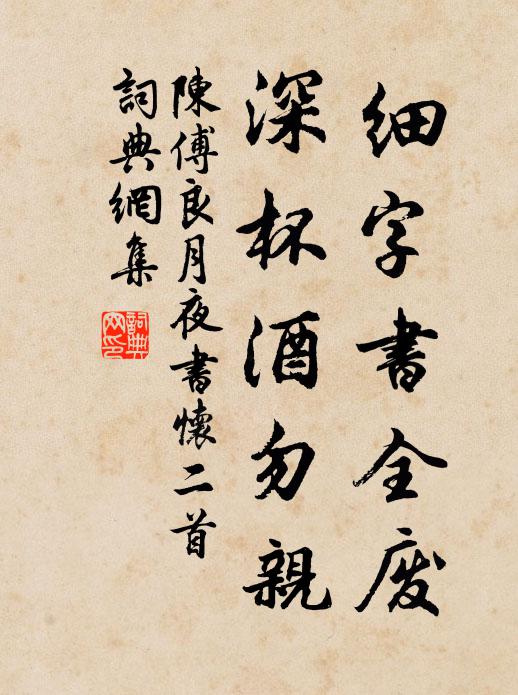 细字書全废
深杯酒勿親
陳傅良月夜書懷二首
詞典網集
詞典网印